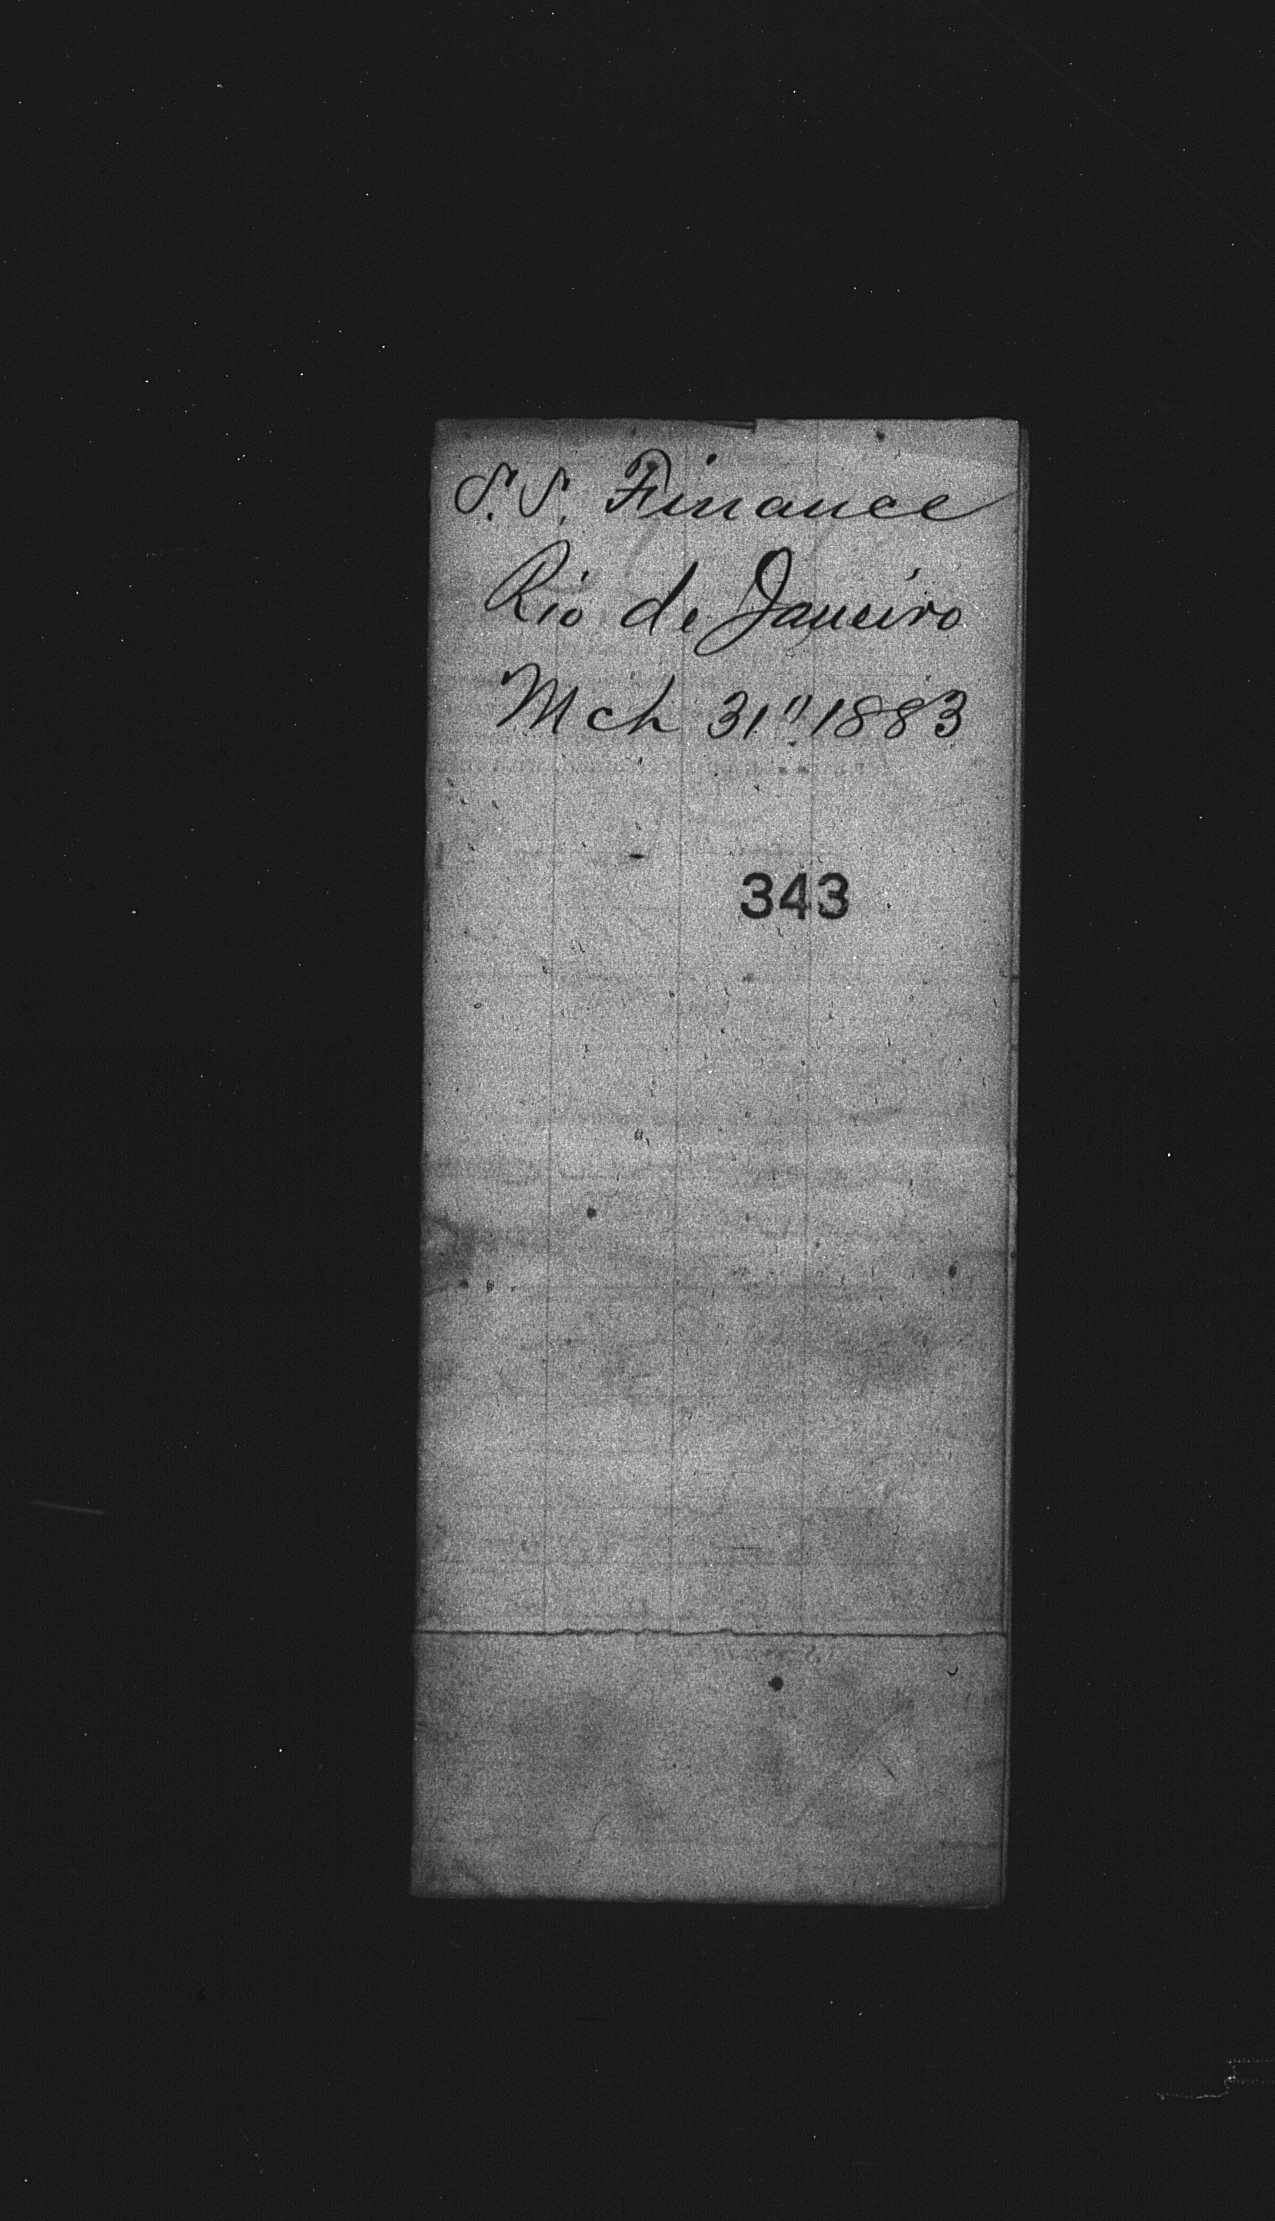 S.S. Finance
Rio de Janeiro
Mch 31" 1883
343